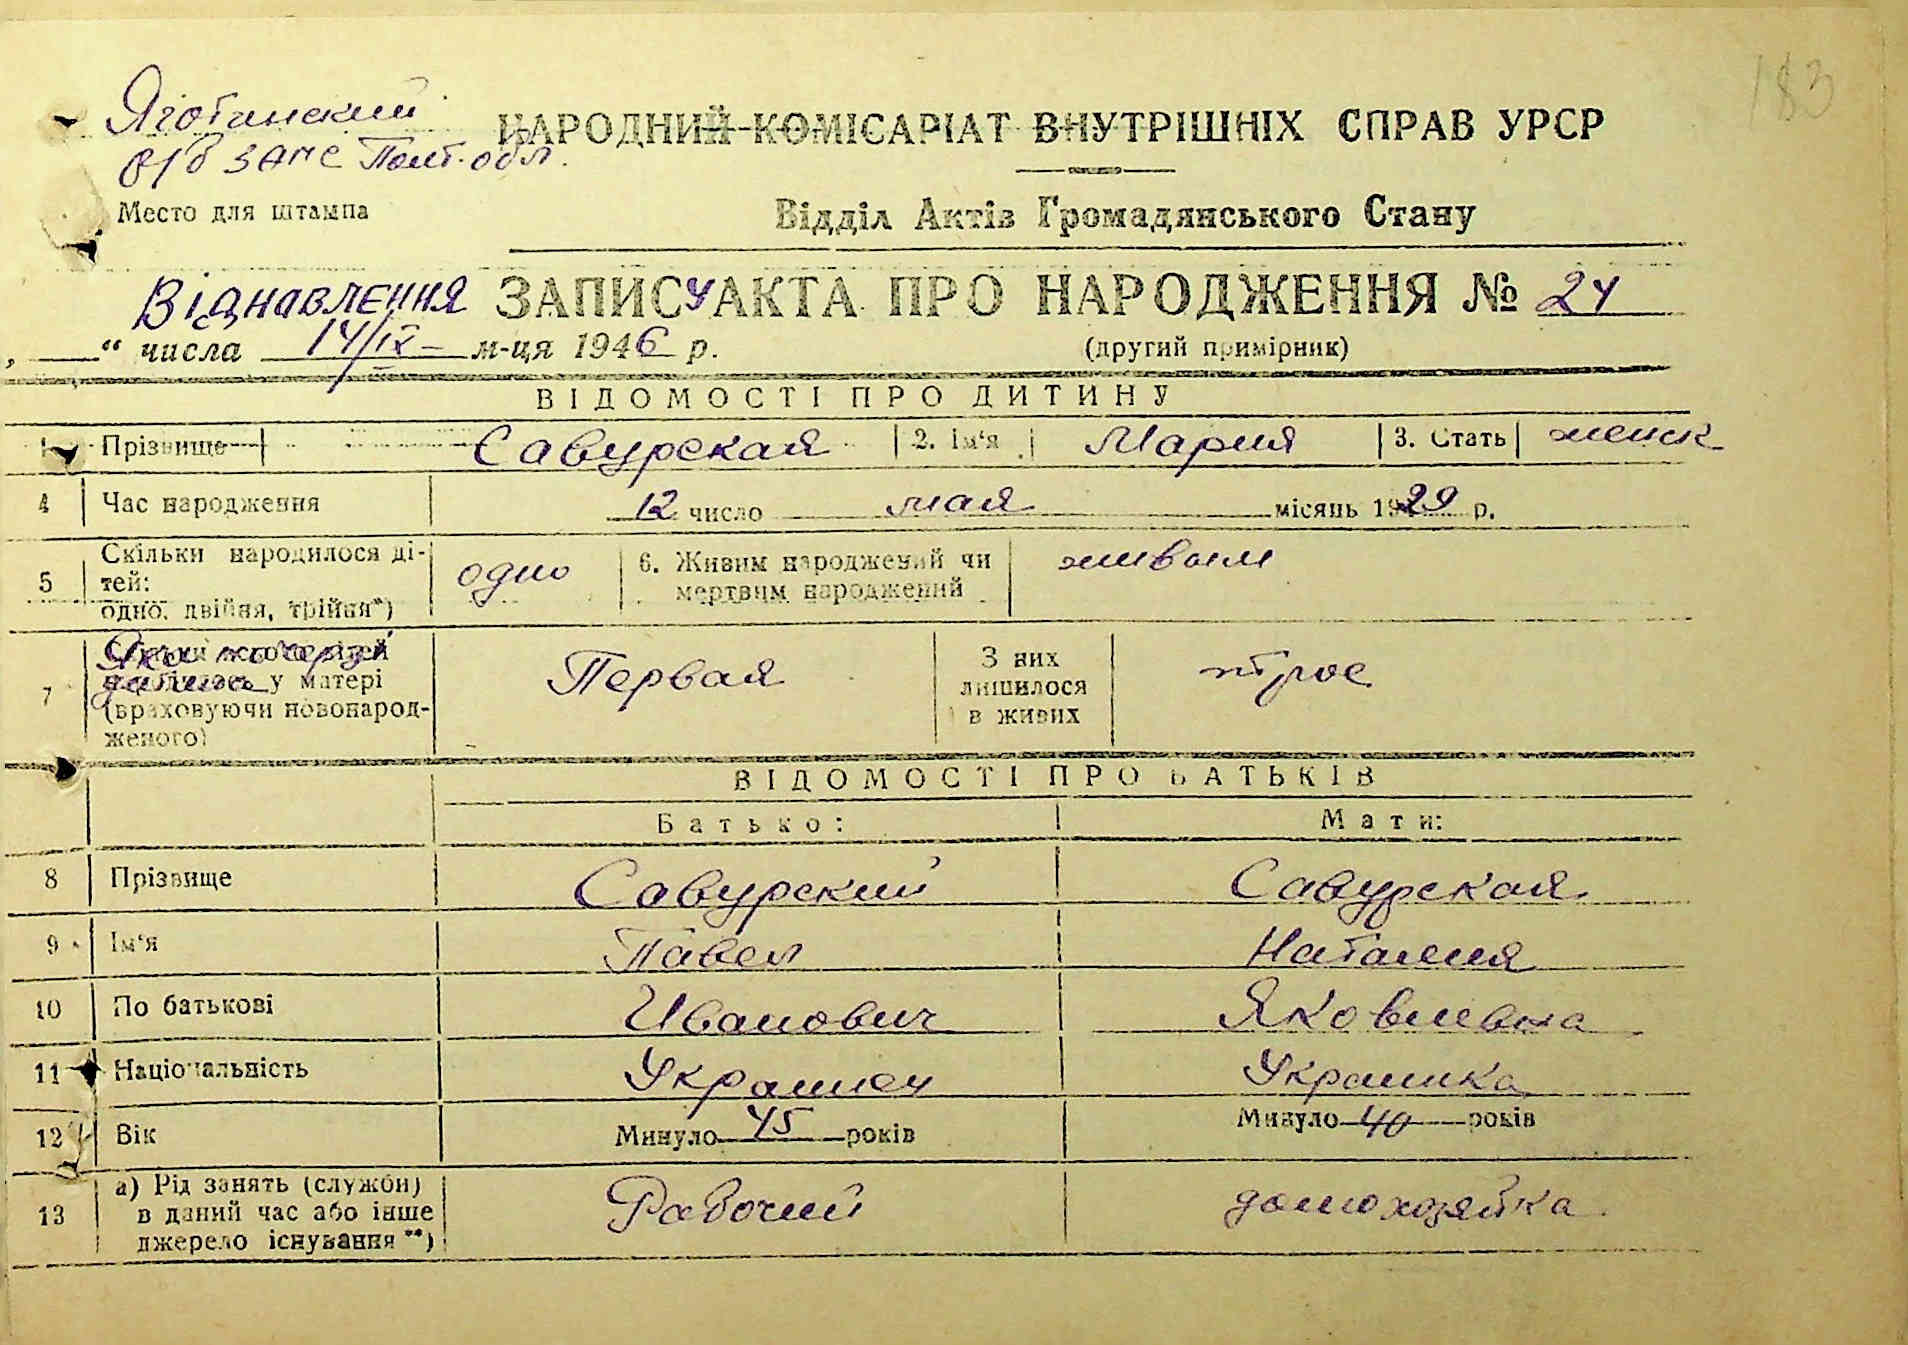 183
Яготинский
р/б ЗАГС Полт. обл.
НАРОДНИЙ КОМІСАРІАТ ВНУТРІШНІХ СПРАВ УРСР
Место для штампа
Відділ Актів Громадянського Стану
Віднавлення ЗАПИСУ АКТА ПРО НАРОДЖЕННЯ № 24
„ — “ числа 14/IX – м-ця 1946 р.
(другий примірник)
ВІДОМОСТІ ПРО ДИТИНУ
1 Прізвище Савурская 2. Ім‘я Мария 3. Стать женск
4 Час народження 12 число мая місяць 1929 р.
5 Скільки народилося ді-
тей:
одно, двійня, трійня*)
одно
6. Живим народжений чи
мертвим народжений
живым
7 Яка по черзі
дитина у матері
(враховуючи новонарод-
женого)
Первая
З них
лишилося
в живих
трое
ВІДОМОСТІ ПРО БАТЬКІВ
Батько: Мати:
8 Прізвище Савурский Савурская
9 Ім‘я Павел Наталия
10 По батькові Иванович Яковлевна
11 Національність Украинец Украинка
12 Вік Минуло 45 років Минуло 40 років
13 а) Рід занять (служби)
в даний час або інше
джерело існування **)
Рабочий домохозяйка